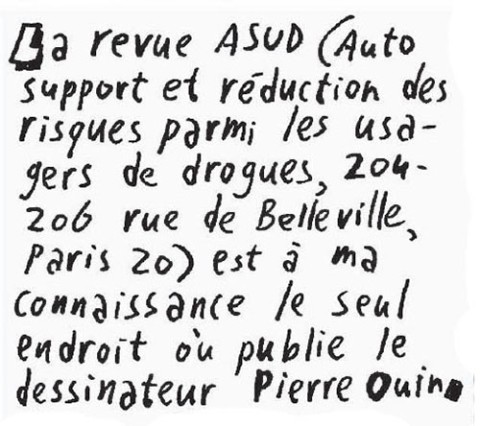 La revue ASUD (Auto
support et réduction des
risques parmi les usa-
gers de drogues, 204-
206 rue de Belleville,
Paris 20) est à ma
connaissance le seul
endroit où publie le
dessinateur Pierre Ouin.